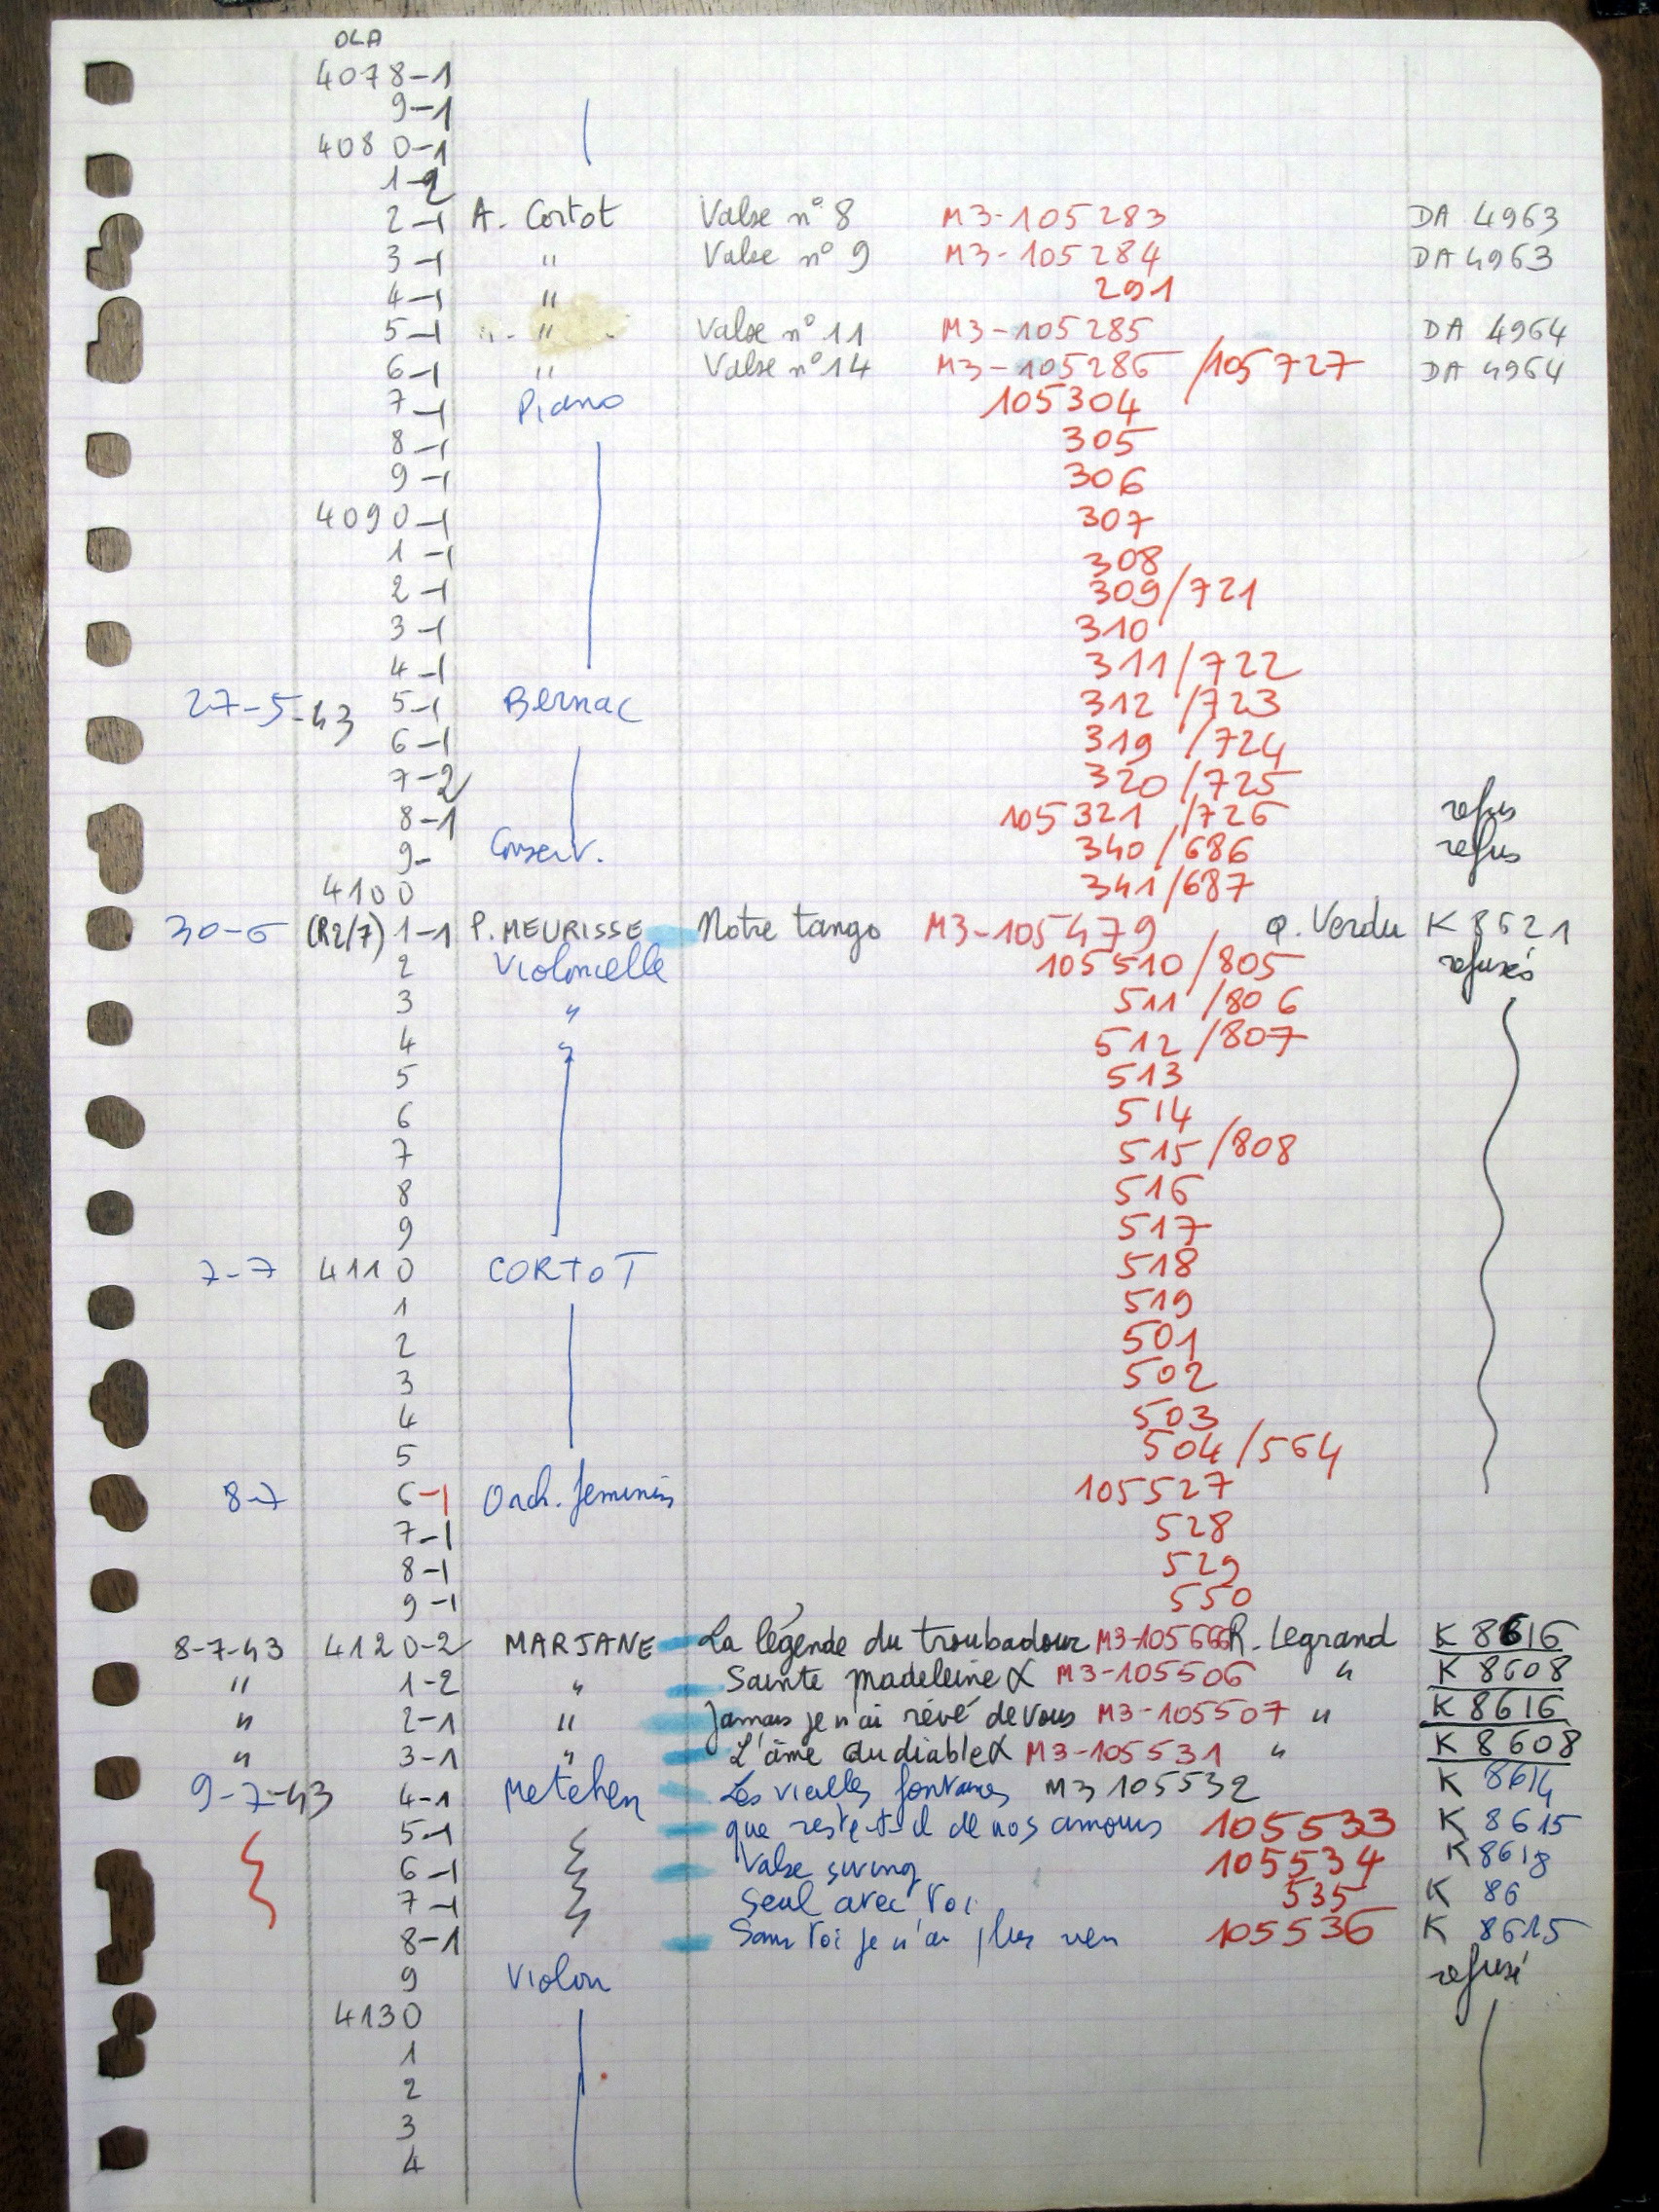 OLA
4078-1
9-1
4080-1
1-2
2-1 A. Cortot Valse n° 8 M3-105283 DA 4963
3-1 " Valse n° 9 M3-105284 DA 4963
4-1 " 291
5-1 " Valse n° 11 M3-105285 DA 4964
6-1 " Valse n° 14 M3-105286 /105727 DA 4964
7-1 Piano 105304
8-1 305
9-1 306
4090-1 307
1-1 308
2-1 309/721
3-1 310
4-1 311/722
27-5-43 5-1 Bernac 312/723
6-1 319/724
7-2 320/725
8-1 105321/726 refus
9- Conserv. 340/686 refus
4100 341/687
30-6 (R2/7) 1-1 P. MEURISSE Notre tango M3-105479 Q. Verdu K 8621
2 Violoncelle 105510/805 refusés
3 " 511/806
4 " 512/807
5 513
6 514
7 515/808
8 516
9 517
7-7 4110 CORTOT 518
1 519
2 501
3 502
4 503
5 504/564
8-7 6-1 Orch. feminin 105527
7-1 528
8-1 529
9-1 550
8-7-43 4120-2 MARJANE La légende du troubadour M3-105666 R. Legrand K 8616
" 1-2 " Sainte Madeleine X M3-105506 " K 8608
" 2-1 " Jamais je n'ai rêvé de vous M3-105507 " K 8616
" 3-1 " L'âme au diable X M3-105531 " K 8608
9-7-43 4-1 Metehen Les vieilles fontaines M3 105532 K 8614
5-1 que reste-t-il de nos amours 105533 K 8615
6-1 Valse swing 105534 K 8618
7-1 Seul avec toi 535 K 86
8-1 Sans toi je n'ai plus rien 105536 K 8615
9 Violon refusé
4130
1
2
3
4